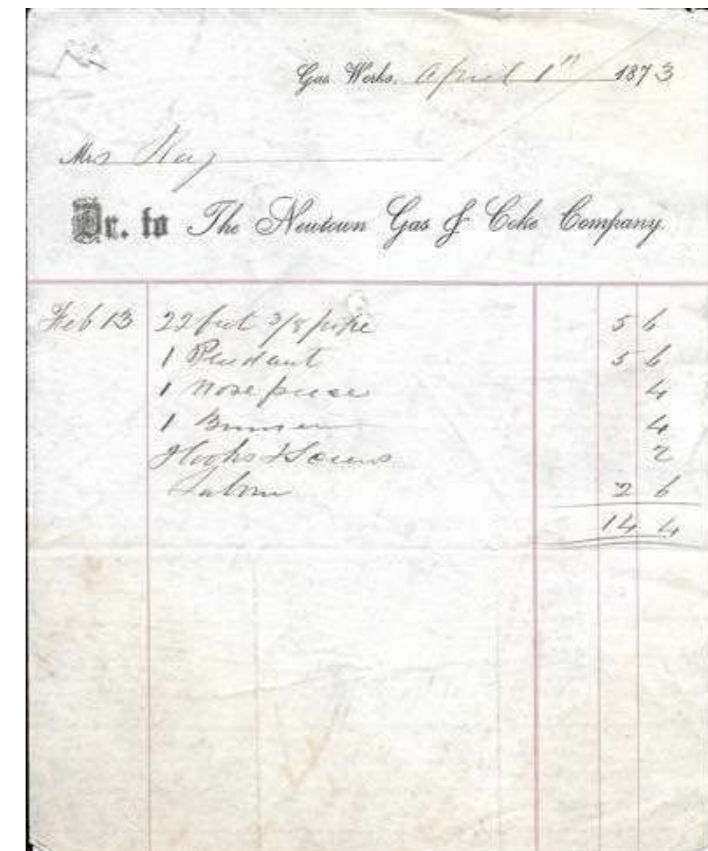 Gas Works, April 1" 1873
Mrs Hay
Dr. to The Newtown Gas & Coke Company.
Feb 13 22 feet 3/8 pipe 5 6
1 Pendant 5 6
1 Nose piece 4
1 Burner 4
Hooks & Screws 2
Labour 2 6
14 4